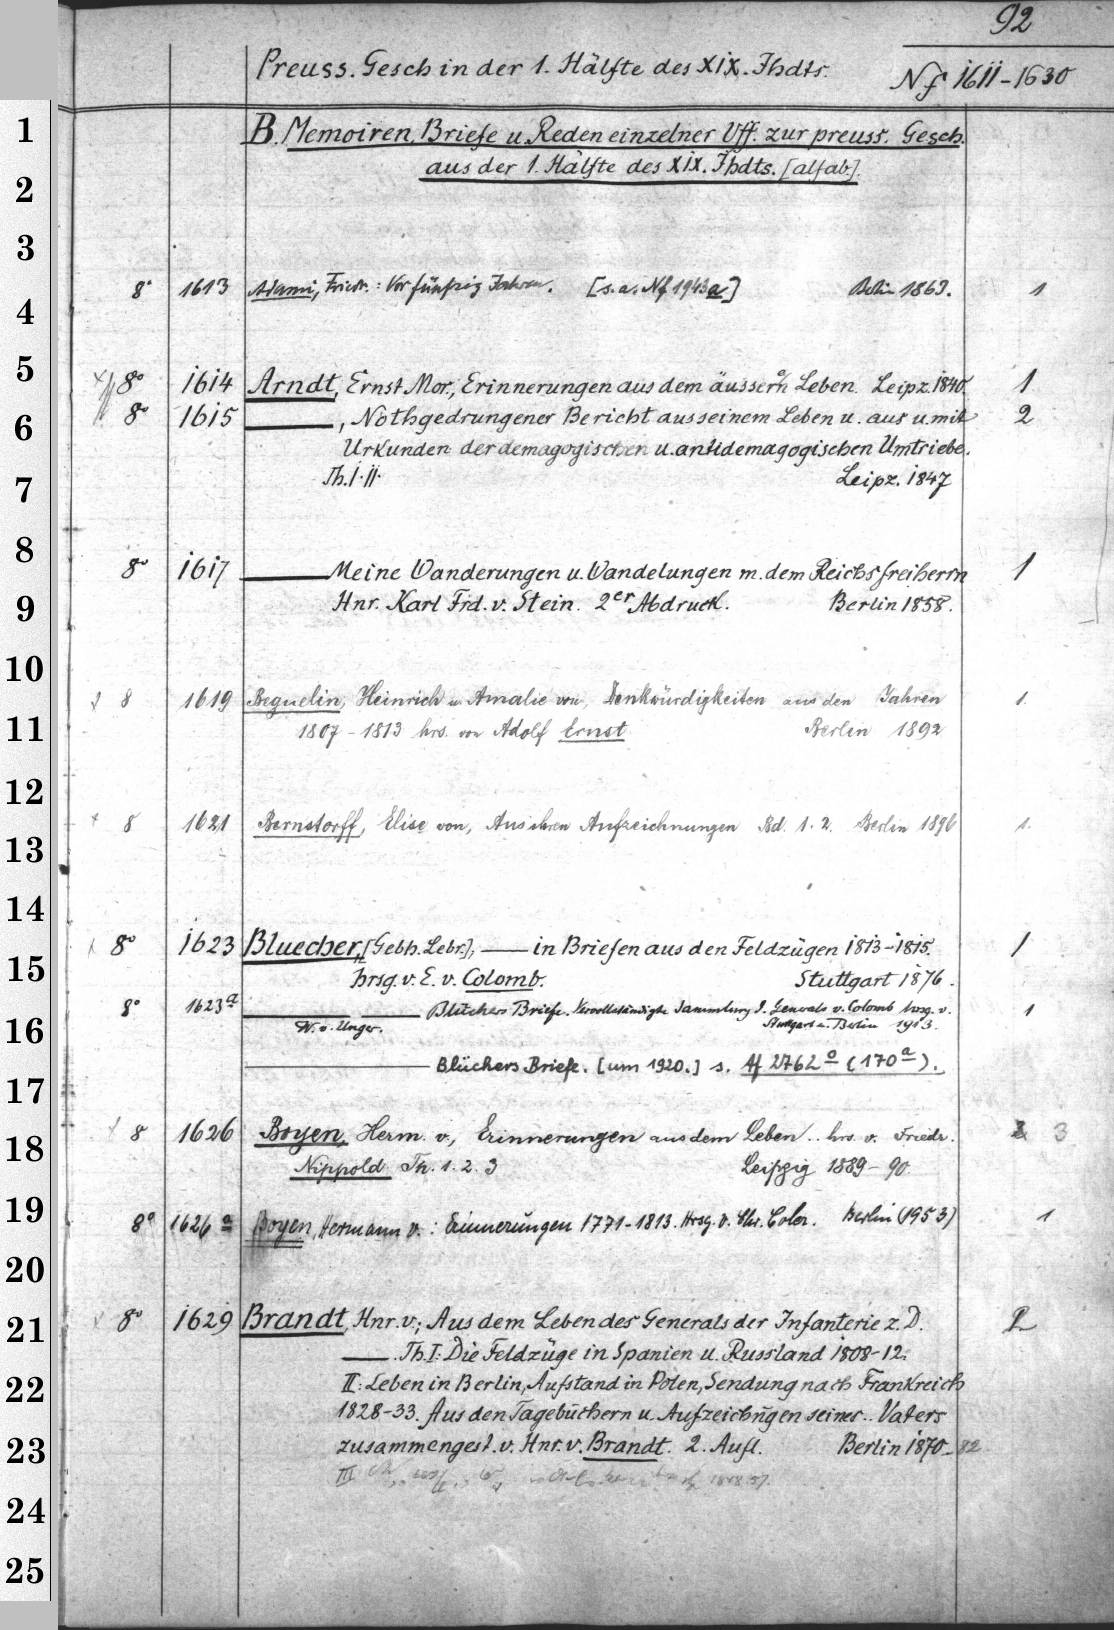 92
Preuss. Gesch in der 1. Hälfte des XIX. Jhdts.
Nf 1611-1630
B. Memoiren, Briefe u. Reden einzelner Vff. zur preuss. Gesch.
aus der 1. Hälfte des XIX. Jhdts. [alfab].
1
2
3
4
5
6
7
8
9
10
11
12
13
14
15
16
17
18
19
20
21
22
23
24
25
8° 1613 Adami, Friedr.: Vor fünfzig Jahren. [s. a. Nf 1943a] Berlin 1863. 1
8° 1614 Arndt, Ernst Mor., Erinnerungen aus dem äussern Leben. Leipz. 1840. 1
8° 1615 ——, Nothgedrungener Bericht aus seinem Leben u. aus u. mit 2
Urkunden der demagogischen u. antidemagogischen Umtriebe.
Th. I. II. Leipz. 1847
8° 1617 —— Meine Wanderungen u. Wandelungen m. dem Reichsfreiherrn 1
Hnr. Karl Frd. v. Stein. 2er Abdruck. Berlin 1858.
8 1619 Beguelin, Heinrich u. Amalie von, Denkwürdigkeiten aus den Jahren 1.
1807-1813 hrs. von Adolf Ernst Berlin 1892
8 1621 Bernstorff, Elise von, Aus ihren Aufzeichnungen Bd. 1. 2. Berlin 1896 1.
8° 1623 Bluecher, [Gebh. Lebr.], —— in Briefen aus den Feldzügen 1813-1815. 1
hrsg. v. E. v. Colomb. Stuttgart 1876.
8° 1623a —— Blüchers Briefe. Vervollständigte Sammlung d. Generals v. Colomb hrsg. v. 1
W. v. Unger. Stuttgart u. Berlin 1913.
—— Blüchers Briefe. [um 1920.] s. Af 2762° (170a).
8 1626 Boyen, Herm. v., Erinnerungen aus dem Leben .. hrs. v. Friedr. 3
Nippold Th. 1. 2. 3 Leipzig 1889-90.
8° 1626a Boyen, Hermann v.: Erinnerungen 1771-1813. Hrsg. v. Chr. Coler. Berlin (1953) 1
8° 1629 Brandt, Hnr. v., Aus dem Leben des Generals der Infanterie z. D. 2
——. Th. I: Die Feldzüge in Spanien u. Russland 1808-12.
II: Leben in Berlin, Aufstand in Polen, Sendung nach Frankreich
1828-33. Aus den Tagebüchern u. Aufzeichngen seines .. Vaters
zusammengest. v. Hnr. v. Brandt. 2. Aufl. Berlin 1870-82
III